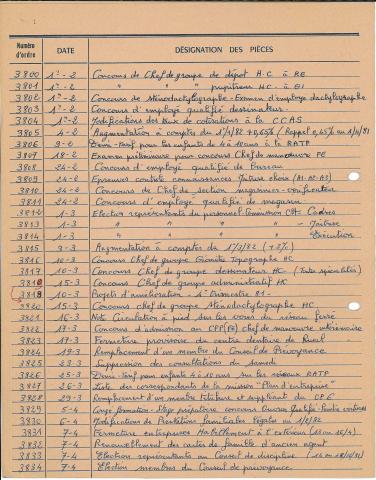 Numéro d'ordre DATE DÉSIGNATION DES PIÈCES
3800 1°-2 Concours de Chef de groupe de dépot H.C à RE
3801 1°-2 " " " pupitreur HC à EI
3802 1°-2 Concours de Sténodactylographe - Examen d'employé dactylographe
3803 1°-2 Concours d'employé qualifié dessinateur
3804 1°-2 Modifications des taux de cotisations à la CCAS
3805 4-2 Augmentation à compter du 1/1/82 +0,65% / Rappel 0,65% au
3806 9-2 Demi-tarif pour les enfants de 4 à 10 ans à la RATP
3807 18-2 Examen préliminaire pour concours Chef de manoeuvre FE
3808 24-2 Concours d'employé qualifié de Bureau
3809 24-2 Epreuves contrôle connaissances
3810 24-2 Concours de Chef de section magasinier-vérificateur
3811 24-2 Concours d'employé qualifié de magasin
3812 1-3 Election représentants du personnel Commission Cadres
3813 1-3 " " " - Maîtrise
3814 1-3 " " " Exécution
3815 9-3 Augmentation à compter du 1/3/82 (+2%)
3816 10-3 Concours Chef de groupe Géomètre Topographe HC
3817 10-3 Concours Chef de groupe dessinateur HC (Toutes spécialités)
3818 15-3 Concours Chef de groupe administratif HC
3819 10-3 Projets d'amélioration - 4° trimestre 81
3820 15-3 Concours Chef de groupe Sténodactylographe HC
3821 16-3 Note Circulation à pied sur les voies du réseau ferré
3822 17-3 Concours d'admission au CPP(FE) chef de manoeuvre intérimaire
3823 17-3 Fermeture provisoire du centre dentaire de Rueil
3824 19-3 Remplacement d'un membre du Conseil de Prévoyance
3825 23-3 Suppression des consultations du Samedi
3826 25-3 Demi Tarif pour enfants 4 à 10 ans sur les réseaux RATP
3827 26-3 Liste des correspondants de la mission "Plan d'entreprise"
3828 29-3 Remplacement d'un membre titulaire et suppléant du CPE
3829 5-4 Congé formation - Stage préparatoire concours Ouvrier Qualifié
3830 6-4 Modifications de Prestations Familiales Légales au 1/2/82
3831 7-4 Fermeture entreprises Habillement à l'extérieur
3832 7-4 Renouvellement des cartes de famille d'ancien agent
3833 7-4 Election représentants au Conseil de discipline
3834 7-4 Election membres du Conseil de prévoyance